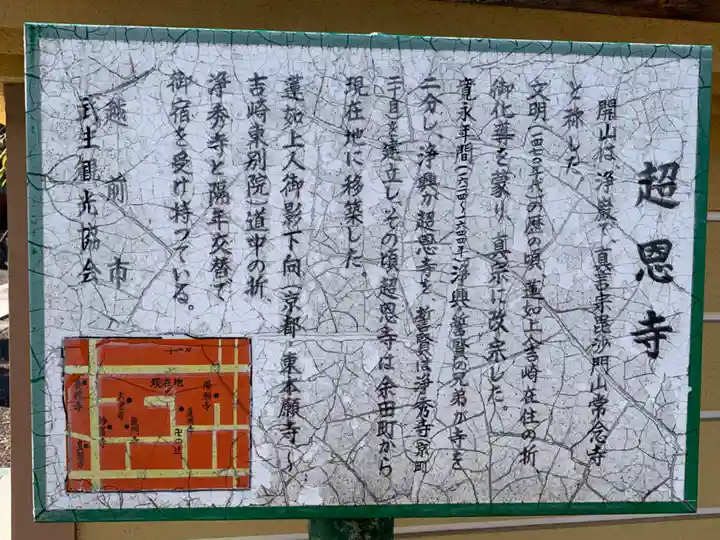 超恩寺
開山は、浄厳で、真言宗毘沙門山常念寺
と称した。
文明(一四七〇年代)の暦の頃、蓮如上人吉崎在住の折
御化導を蒙り、真宗に改宗した
寛永年間(一六二四〜一六四四年)浄興、誓賢の兄弟が寺を
二分し、浄興が超恩寺を、誓賢は浄秀寺(京町
二丁目)を建立し、その頃、超恩寺は余田町から
現在地に移築した。
蓮如上人御影下向(京都・東本願寺〜
吉崎東別院)道中の折、
浄秀寺と隔年交替で
御宿を受け持つている。
越前市
武生観光協会
現在地
陽願寺
卍の辻
龍門寺